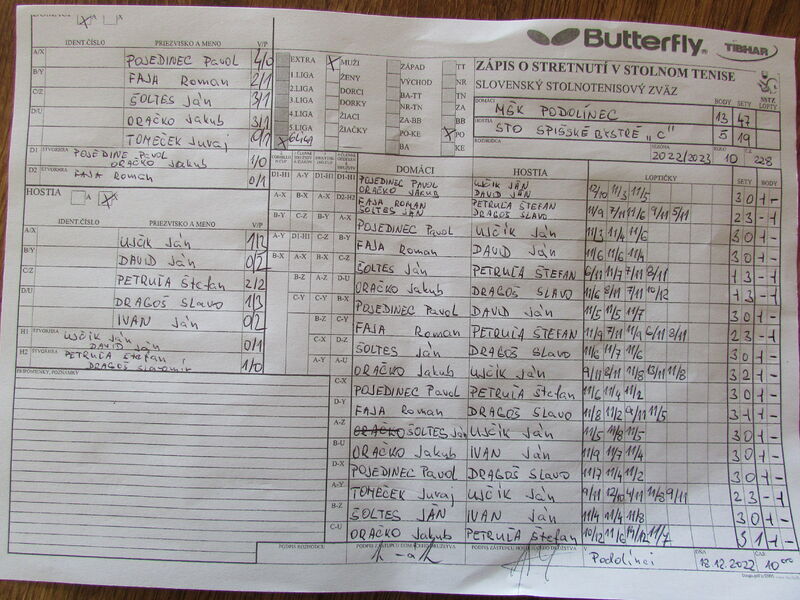 Butterfly
TIBHAR
ZÁPIS O STRETNUTÍ V STOLNOM TENISE
SLOVENSKÝ STOLNOTENISOVÝ ZVÄZ
DOMÁCI MŠK PODOLÍNEC
BODY 13 SETY 47
HOSTIA STO SPIŠSKÉ BYSTRÉ "C"
5 19
SEZÓNA 2022/2023 KOLO 10
IDENT.ČÍSLO PRIEZVISKO A MENO V/P
A/X POJEDINEC PAVOL 4/0
B/Y FAJA Roman 2/1
C/Z ŠOLTES Ján 3/1
D/U ORAČKO Jakub 3/1
TOMEČEK Juraj 0/1
D1 ŠTVORHRA POJEDINE PAVOL
ORAČKO Jakub 1/0
D2 ŠTVORHRA FAJA Roman 0/1
EXTRA
1.LIGA
2.LIGA
3.LIGA
4.LIGA
5.LIGA
MUŽI
ŽENY
DORCI
DORKY
ŽIACI
ŽIAČKY
ZÁPAD
VÝCHOD
BA-TT
NR-TN
ZA-BB
PO-KE
BA
TT
NR
TN
ZA
BB
PO
KE
HOSTIA A X
IDENT.ČÍSLO PRIEZVISKO A MENO V/P
A/X UJČIK Ján 1/2
B/Y DAVID Ján 0/2
C/Z PETRUĽA Štefan 2/2
D/U DRAGOŠ SLAVO 1/3
IVAN Ján 0/2
H1 ŠTVORHRA UJČIK Ján
DAVID Ján 0/1
H2 ŠTVORHRA PETRUĽA Štefan
DRAGOŠ Slavomír 1/0
PRIPOMIENKY, POZNÁMKY
DOMÁCI HOSTIA LOPTIČKY SETY BODY
POJEDINEC PAVOL UJČIK JÁN
ORAČKO JAKUB DAVID JÁN 12/10 11/3 11/5 3 0 1 -
FAJA ROMAN PETRUĽA ŠTEFAN
ŠOLTES JÁN DRAGOŠ SLAVO 11/9 7/11 11/6 9/11 5/11 2 3 - 1
POJEDINEC PAVOL UJČIK JÁN 11/3 11/4 11/6 3 0 1 -
FAJA Roman DAVID JÁN 11/6 11/6 11/4 3 0 1 -
ŠOLTES Ján PETRUĽA ŠTEFAN 6/11 11/7 7/11 8/11 1 3 - 1
ORAČKO Jakub DRAGOŠ SLAVO 11/6 8/11 7/11 10/12 1 3 - 1
POJEDINEC PAVOL DAVID JÁN 11/5 11/5 11/7 3 0 1 -
FAJA Roman PETRUĽA ŠTEFAN 11/9 7/11 11/9 6/11 8/11 2 3 - 1
ŠOLTES Ján DRAGOŠ SLAVO 11/6 11/7 11/6 3 0 1 -
ORAČKO Jakub UJČIK JÁN 9/11 11/8 13/11 11/8 3 2 1 -
POJEDINEC PAVOL PETRUĽA Štefan 11/6 11/4 11/2 3 0 1 -
FAJA Roman DRAGOŠ SLAVO 11/8 11/2 9/11 11/5 3 1 1 -
ORAČKO ŠOLTES Ján UJČIK JÁN 11/5 11/8 11/5 3 0 1 -
ORAČKO Jakub IVAN JÁN 11/9 11/7 11/4 3 0 1 -
POJEDINEC PAVOL DRAGOŠ SLAVO 11/7 11/4 11/2 3 0 1 -
TOMEČEK Juraj UJČIK Ján 9/11 12/10 4/11 11/8 9/11 2 3 - 1
ŠOLTES JÁN IVAN Ján 11/4 11/4 11/8 3 0 1 -
ORAČKO Jakub PETRUĽA Štefan 10/12 11/6 14/12 11/7 3 1 1 -
PODPIS ROZHODCU PODPIS ZÁSTUPCU DOMÁCEHO DRUŽSTVA PODPIS ZÁSTUPCU HOSŤUJÚCEHO DRUŽSTVA
V Podolínci DŇA 18.12.2022 ČAS 10